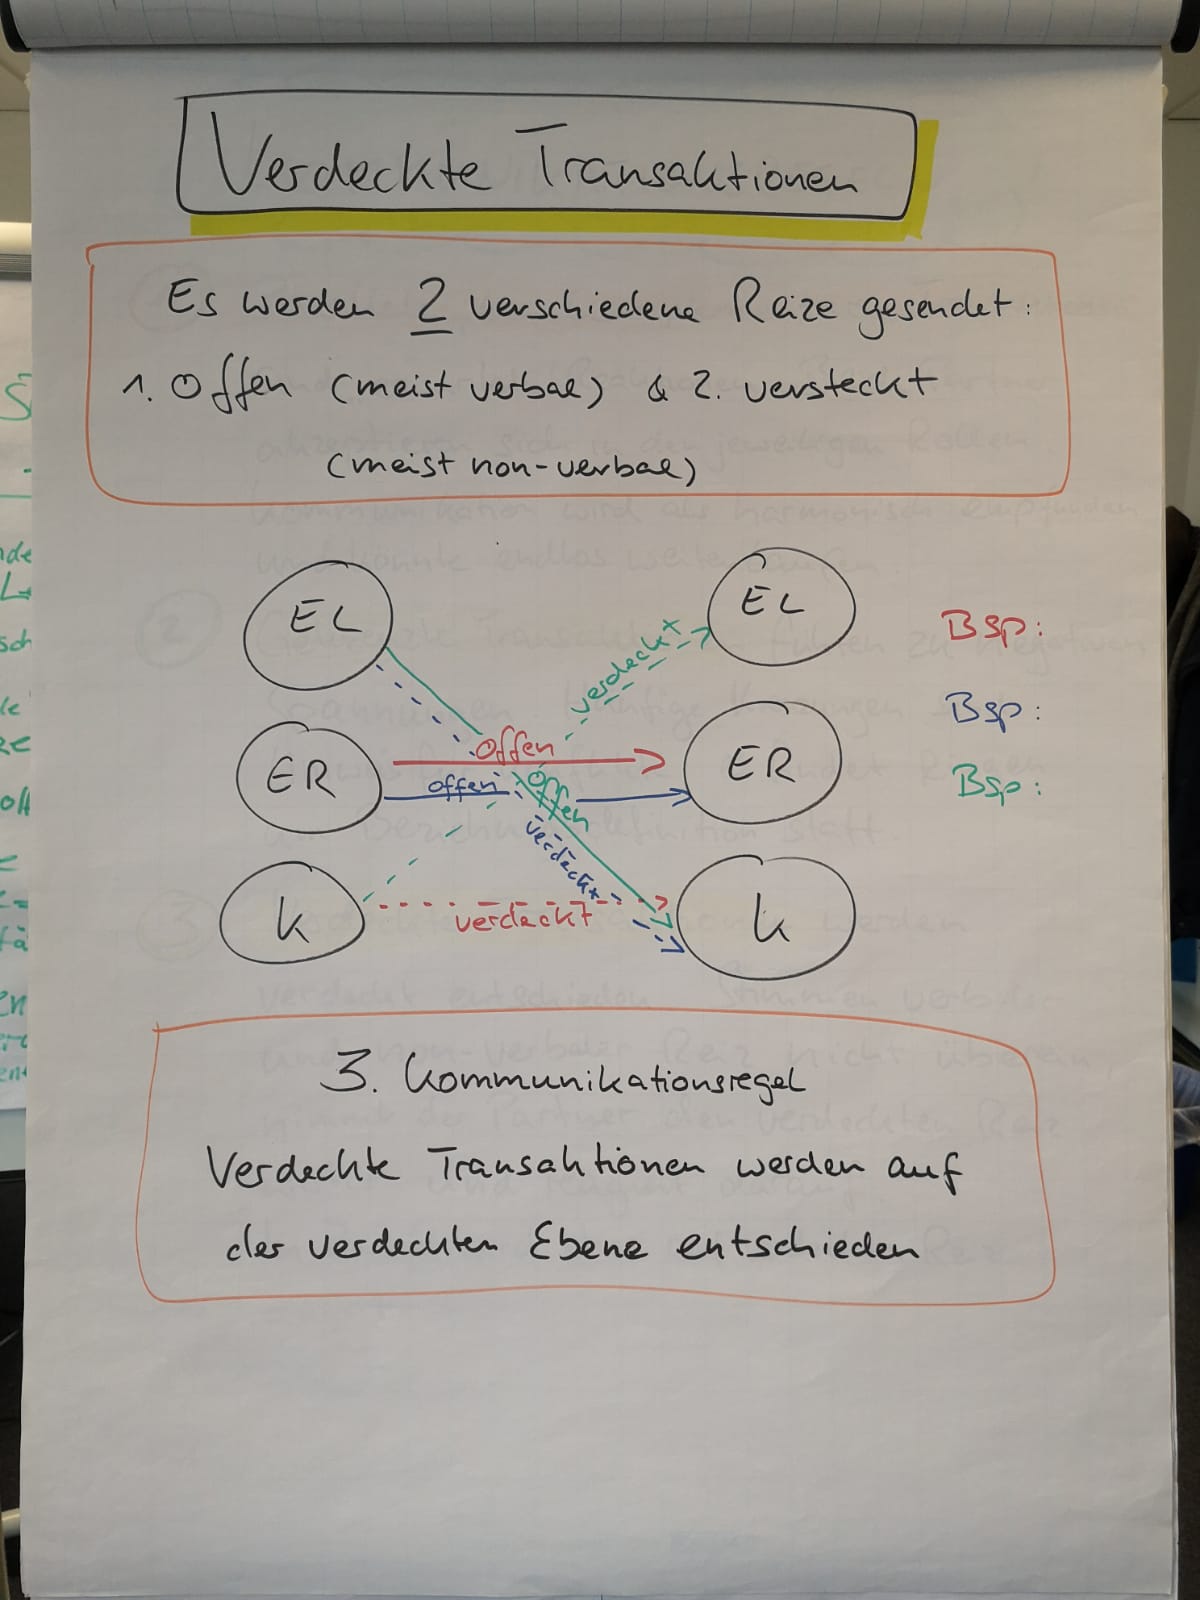 Verdeckte Transaktionen
Es werden 2 verschiedene Reize gesendet:
1. Offen (meist verbal) & 2. versteckt
(meist non-verbal)
EL
EL
verdeckt
Bsp:
Bsp:
Bsp:
offen
ER
ER
offen
Offen
verdeckt
K
verdeckt
K
3. Kommunikationsregel
Verdeckte Transaktionen werden auf
der verdeckten Ebene entschieden